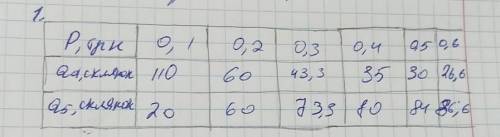 1.
P, грн 0,1 0,2 0,3 0,4 0,5 0,6
Qd, склянок 110 60 43,3 35 30 26,6
Qs, склянок 20 60 73,3 80 84 86,6